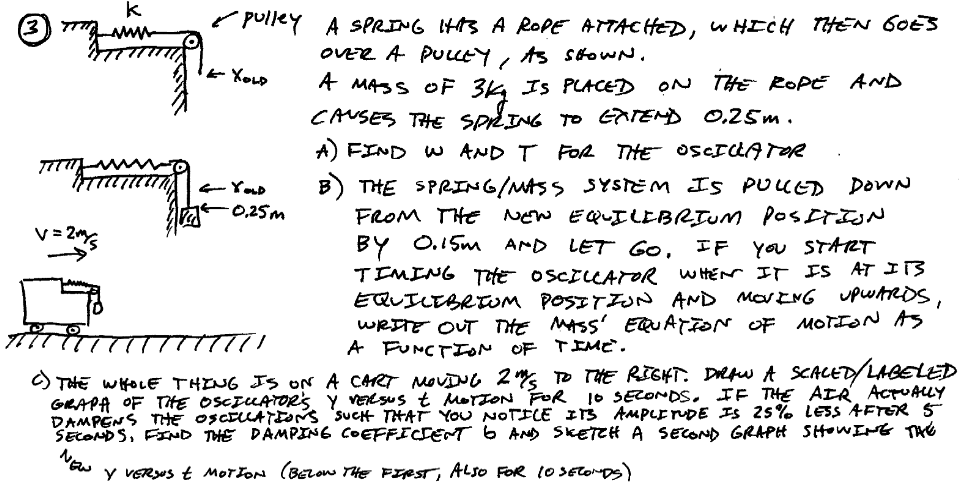 3
K
PULLEY
A SPRING HAS A ROPE ATTACHED, WHICH THEN GOES
OVER A PULLEY, AS SHOWN.
← XOLD
A MASS OF 3Kg IS PLACED ON THE ROPE AND
CAUSES THE SPRING TO EXTEND 0.25m.
A) FIND W AND T FOR THE OSCILLATOR
← XOLD
← 0.25m
B) THE SPRING/MASS SYSTEM IS PULLED DOWN
FROM THE NEW EQUILIBRIUM POSITION
BY 0.15m AND LET GO. IF YOU START
TIMING THE OSCILLATOR WHEN IT IS AT ITS
EQUILIBRIUM POSITION AND MOVING UPWARDS,
WRITE OUT THE MASS' EQUATION OF MOTION AS
A FUNCTION OF TIME.
V = 2m/s
C) THE WHOLE THING IS ON A CART MOVING 2 m/s TO THE RIGHT. DRAW A SCALED/LABELED
GRAPH OF THE OSCILLATOR'S Y VERSUS t MOTION FOR 10 SECONDS. IF THE AIR ACTUALLY
DAMPENS THE OSCILLATIONS SUCH THAT YOU NOTICE ITS AMPLITUDE IS 25% LESS AFTER 5
SECONDS, FIND THE DAMPING COEFFICIENT b AND SKETCH A SECOND GRAPH SHOWING THE
NEW Y VERSUS t MOTION (BELOW THE FIRST, ALSO FOR 10 SECONDS)